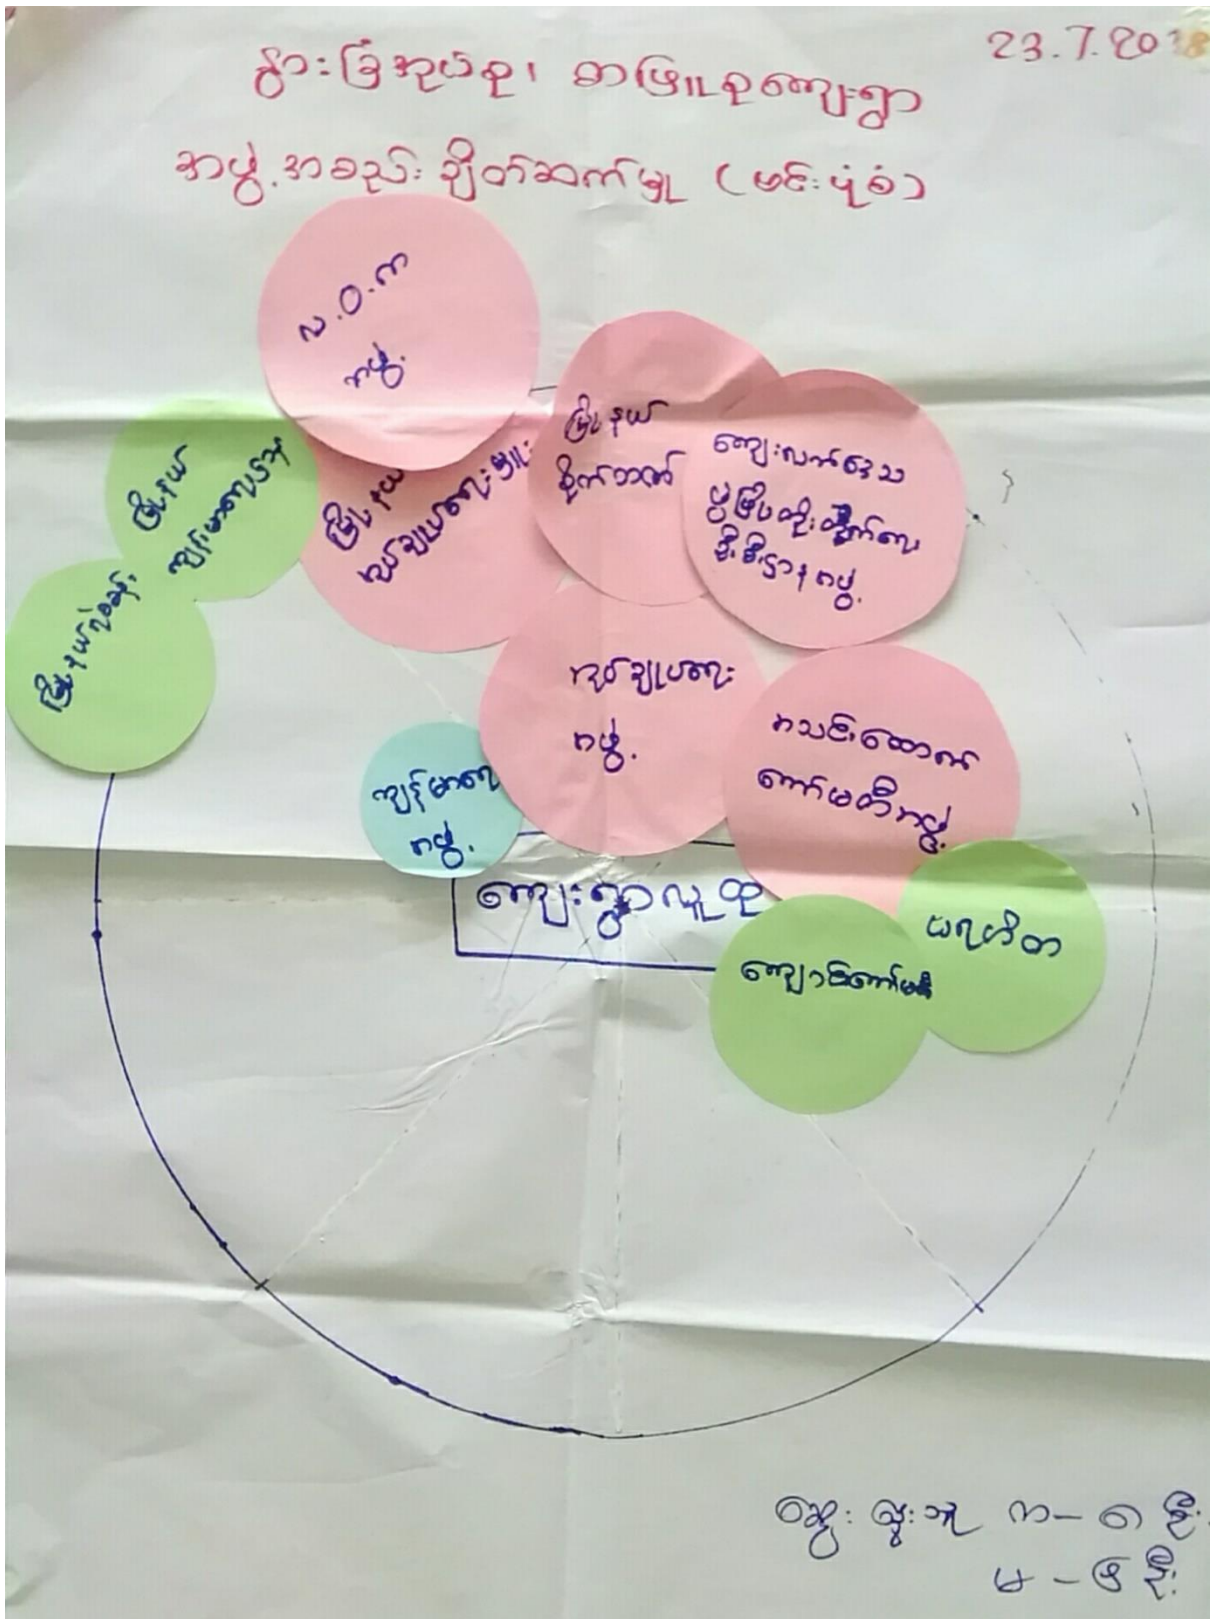 23.7.2018
နွားခြံအုပ်စု၊ စာဖြူစုကျေးရွာ
အဖွဲ့အစည်းချိတ်ဆက်မှု (မင်းပုံစံ)
လ.ဝ.က
အဖွဲ့
မြို့နယ်
ကျန်းမာရေး
မြို့နယ်ရဲစခန်း
မြို့နယ်
အုပ်ချုပ်ရေးမှူး
မြို့နယ်
စိုက်ဘဏ်
ကျေးလက်ဒေသ
ဖွံ့ဖြိုးတိုးတက်ရေး
ဦးစီးဌာနအဖွဲ့
အုပ်ချုပ်ရေး
အဖွဲ့
ကျန်းမာရေး
အဖွဲ့
အသင်းထောက်
ကော်မတီအဖွဲ့
ကျေးရွာလူထု
ပရဟိတ
ကျောင်းကော်မတီ
ဆွေးနွေးသူ က - ၈ ဦး
မ - ၆ ဦး